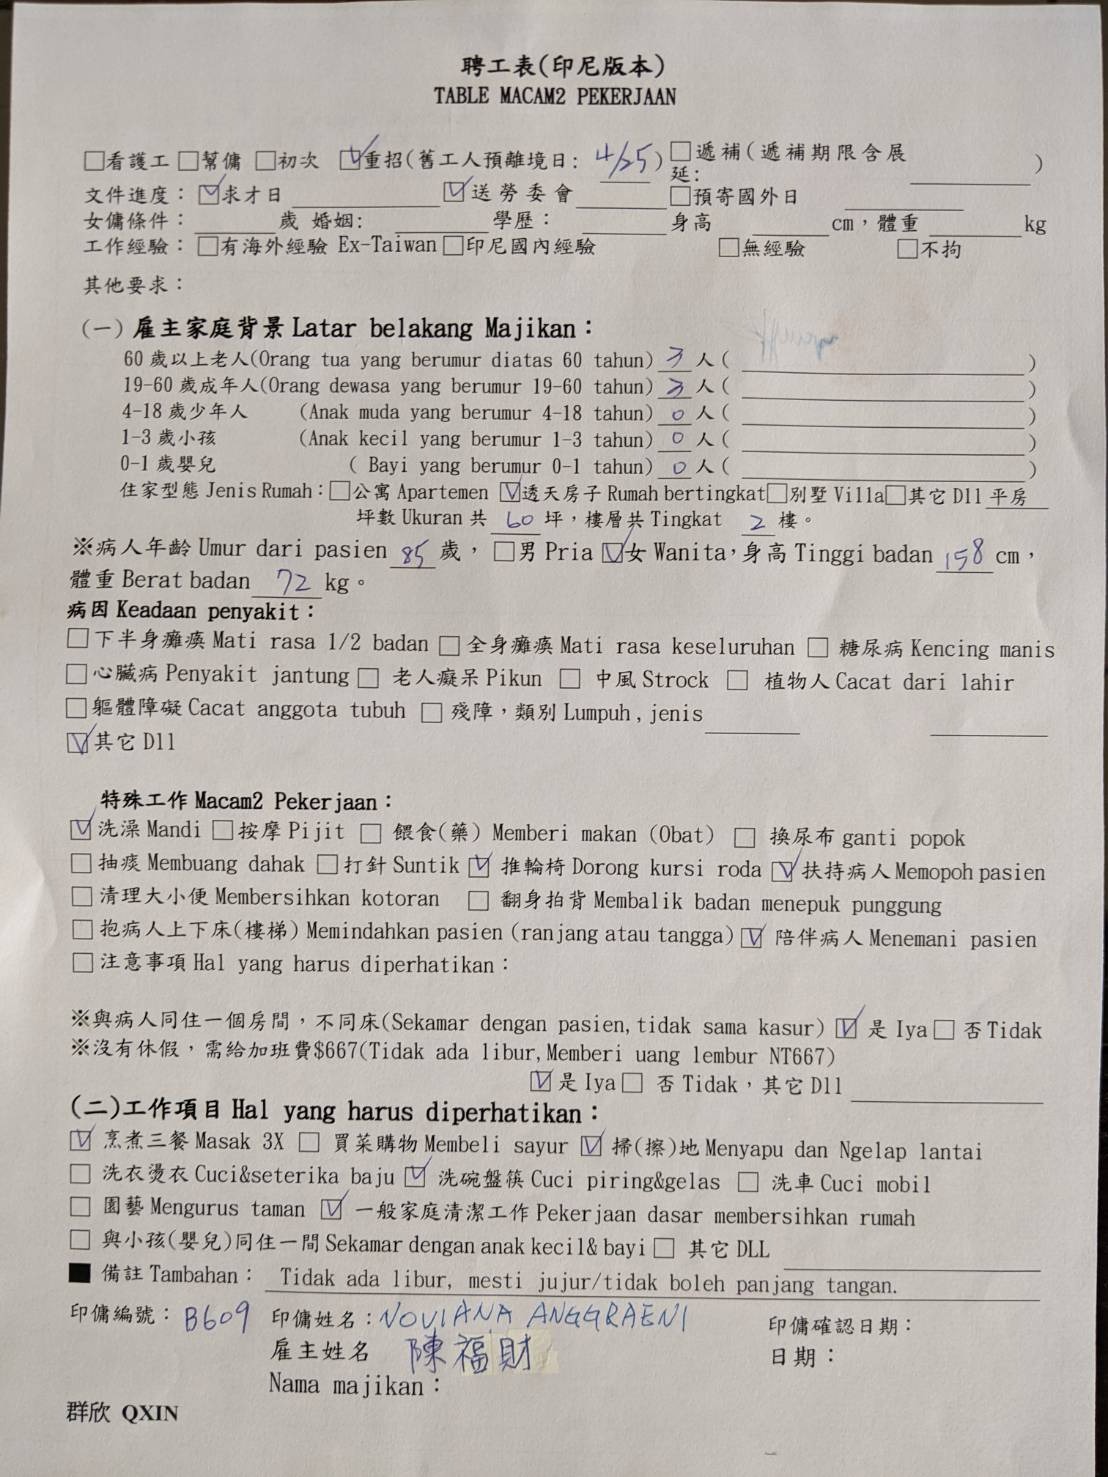 聘工表(印尼版本)
TABLE MACAM2 PEKERJAAN
□看護工 □幫傭 □初次 ☑重招(舊工人預離境日: 4/25) □遞補(遞補期限含展延: )
文件進度: ☑求才日 ☑送勞委會 □預寄國外日
女傭條件: 歲 婚姻: 學歷: 身高 cm,體重 kg
工作經驗: □有海外經驗 Ex-Taiwan □印尼國內經驗 □無經驗 □不拘
其他要求:
(一) 雇主家庭背景 Latar belakang Majikan:
60 歲以上老人(Orang tua yang berumur diatas 60 tahun) 3 人( )
19-60 歲成年人(Orang dewasa yang berumur 19-60 tahun) 3 人( )
4-18 歲少年人 (Anak muda yang berumur 4-18 tahun) 0 人( )
1-3 歲小孩 (Anak kecil yang berumur 1-3 tahun) 0 人( )
0-1 歲嬰兒 ( Bayi yang berumur 0-1 tahun) 0 人( )
住家型態 Jenis Rumah: □公寓 Apartemen ☑透天房子 Rumah bertingkat □別墅 Villa □其它 Dll 平房
坪數 Ukuran 共 60 坪,樓層共 Tingkat 2 樓。
※病人年齡 Umur dari pasien 85 歲, □男 Pria ☑女 Wanita,身高 Tinggi badan 158 cm,
體重 Berat badan 72 kg。
病因 Keadaan penyakit:
□下半身癱瘓 Mati rasa 1/2 badan □全身癱瘓 Mati rasa keseluruhan □ 糖尿病 Kencing manis
□心臟病 Penyakit jantung □ 老人癡呆 Pikun □ 中風 Strock □ 植物人 Cacat dari lahir
□軀體障礙 Cacat anggota tubuh □ 殘障,類別 Lumpuh , jenis
☑其它 Dll
特殊工作 Macam2 Pekerjaan:
☑洗澡 Mandi □按摩 Pijit □ 餵食(藥) Memberi makan (Obat) □ 換尿布 ganti popok
□抽痰 Membuang dahak □打針 Suntik ☑ 推輪椅 Dorong kursi roda ☑扶持病人 Memopoh pasien
□清理大小便 Membersihkan kotoran □ 翻身拍背 Membalik badan menepuk punggung
□抱病人上下床(樓梯) Memindahkan pasien (ranjang atau tangga) ☑ 陪伴病人 Menemani pasien
□注意事項 Hal yang harus diperhatikan:
※與病人同住一個房間,不同床(Sekamar dengan pasien, tidak sama kasur) ☑ 是 Iya □ 否 Tidak
※沒有休假,需給加班費$667(Tidak ada libur, Memberi uang lembur NT667)
☑是 Iya □ 否 Tidak,其它 Dll
(二)工作項目 Hal yang harus diperhatikan:
☑ 烹煮三餐 Masak 3X □ 買菜購物 Membeli sayur ☑ 掃(擦)地 Menyapu dan Ngelap lantai
□ 洗衣燙衣 Cuci&seterika baju ☑ 洗碗盤筷 Cuci piring&gelas □ 洗車 Cuci mobil
□ 園藝 Mengurus taman ☑ 一般家庭清潔工作 Pekerjaan dasar membersihkan rumah
□ 與小孩(嬰兒)同住一間 Sekamar dengan anak kecil& bayi □ 其它 DLL
■ 備註 Tambahan: Tidak ada libur, mesti jujur/tidak boleh panjang tangan.
印傭編號: B609 印傭姓名: NOVIANA ANGGRAENI 印傭確認日期:
雇主姓名 陳福財 日期:
Nama majikan:
群欣 QXIN